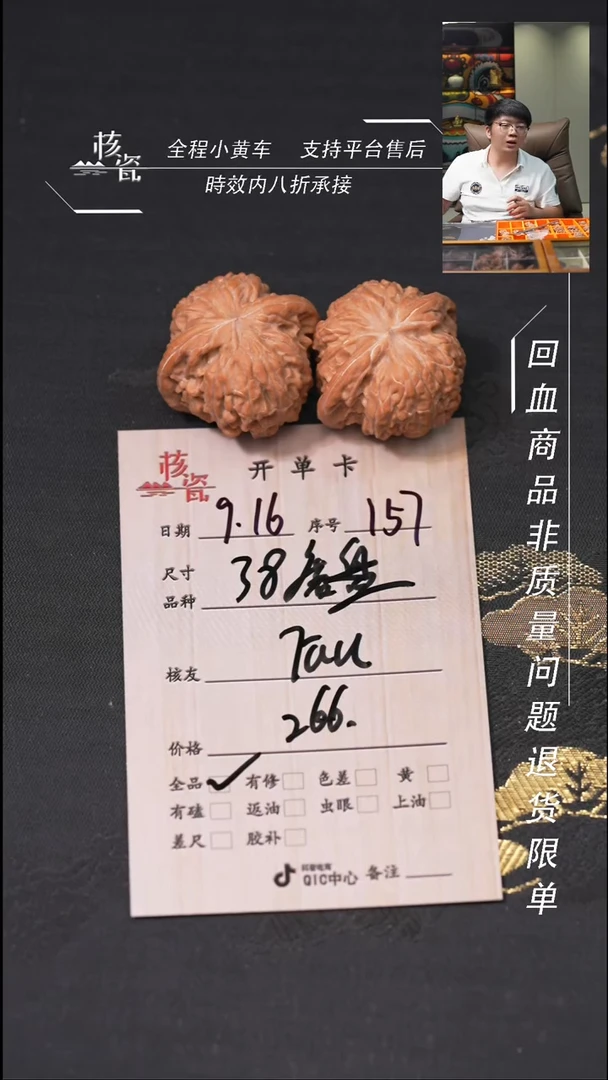 核瓷
全程小黄车 支持平台售后
時效内八折承接
回血商品非质量问题退货限单
核瓷
开单卡
日期 9.16 序号 157
尺寸
品种 38
核友
价格 266.
全品 有修 色差 黄
有磕 返油 虫眼 上油
差尺 胶补
抖音电商
QIC中心 备注